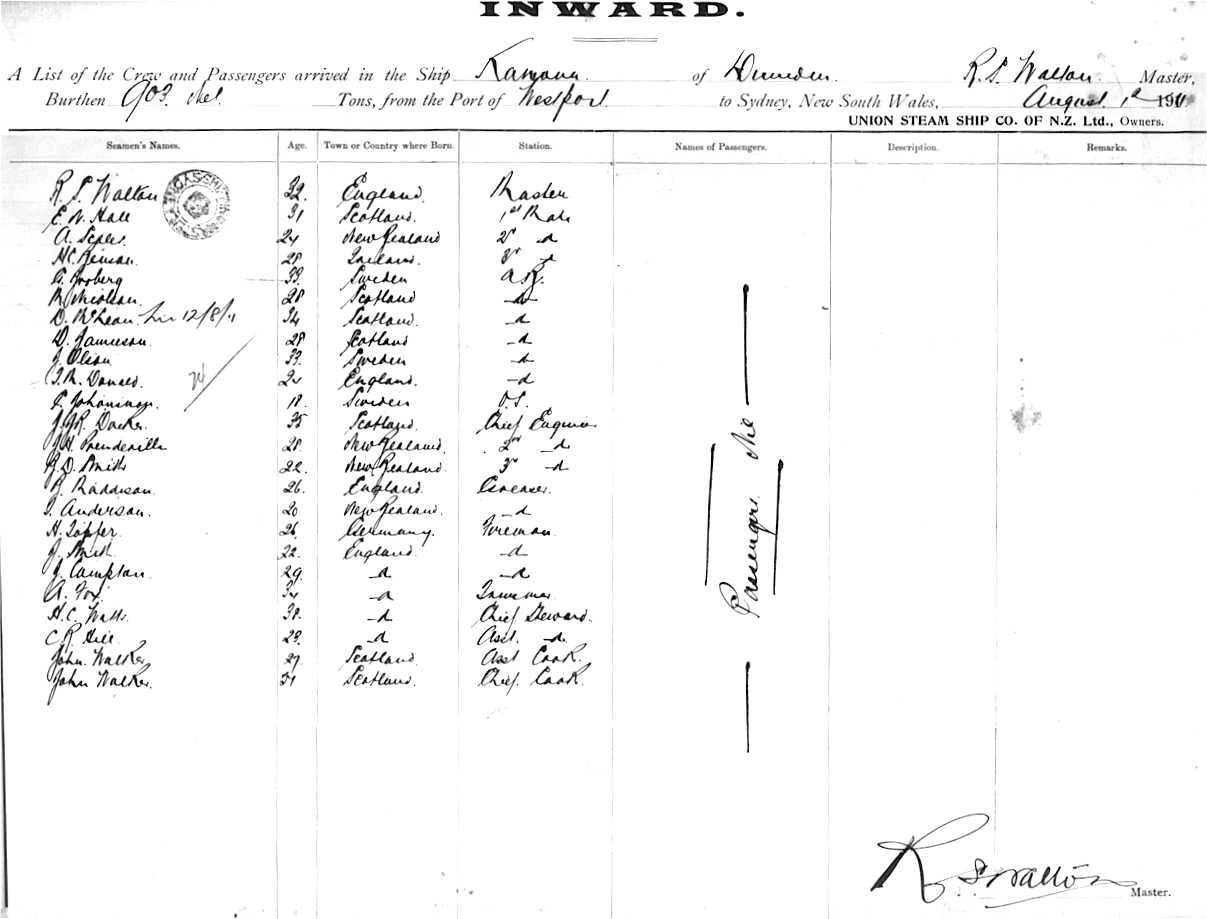 INWARD.
A List of the Crew and Passengers arrived in the Ship of Dunedin R. S. Walton Master,
Burthen 903 Tons, from the Port of Westport to Sydney, New South Wales, August 1st 1911
UNION STEAM SHIP CO. OF N.Z. Ltd., Owners.
Seamen's Names. Age. Town or Country where Born. Station. Names of Passengers. Description. Remarks.
R. S. Walton 32. England. Master
E. W. Hall 31 Scotland. 1st Mate
A. 24 New Zealand 2nd d
H.C. 28 Ireland. 3rd d
33. Sweden A.B.
Nicolson. 28 Scotland d
D. McLean 12/8/11 34 Scotland. d
D. Jamieson. 28 Scotland d
J. Olson 33. Sweden d
Donald. 24 England. d
18. Sweden O.S.
35 Scotland. Chief Engineer
J.H. Prenderville 28. New Zealand. 2nd d
D. Smith 22. New Zealand 3rd d
Maddison. 26. England. Greaser.
Anderson. 20 New Zealand. d
H. Töpfer 26. Germany. Fireman
J. Smith 22. England. d
J. Campton. 29. d d
A. Fox 34 d Trimmer
H.C. Watts. 38. d Chief Steward.
C R Hill 23. d Asst. d
John Walker 27 Scotland. Asst Cook.
John Walker. 31 Scotland. Chief Cook.
Passengers Nil
R S Walton
Master.